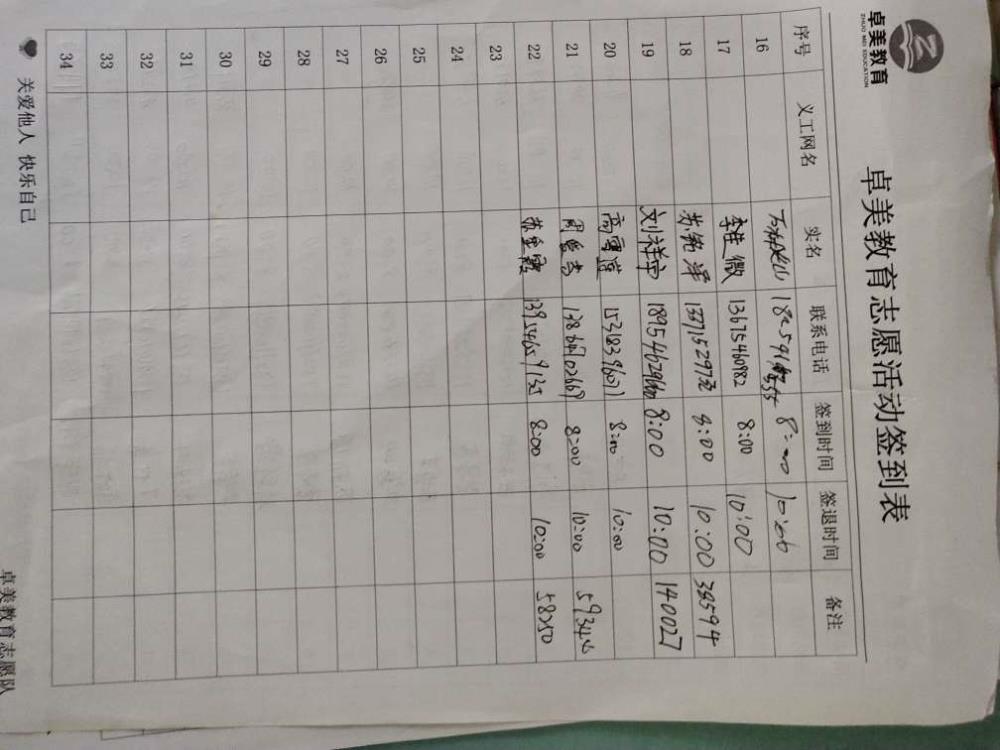 卓美教育
ZHUO MEI EDUCATION
卓美教育志愿活动签到表
序号 义工网名 实名 联系电话 签到时间 签退时间 备注
16 8:00 10:00
17 李佳微 13675460982 8:00 10:00
18 苏铭泽 8:00 10:00 385594
19 刘祥宇 18954629660 8:00 10:00 140027
20 高雪莲 15318396071 8:00 10:00
21 13864102669 8:00 10:00
22 8:00 10:00 58250
23
24
25
26
27
28
29
30
31
32
33
34
关爱他人 快乐自己
卓美教育志愿队